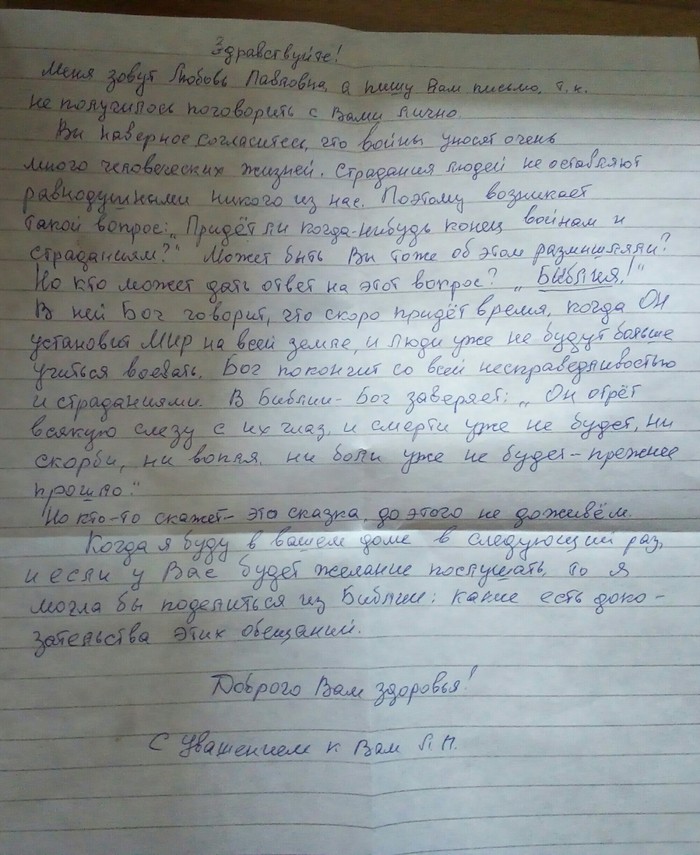 Здравствуйте!
Меня зовут Любовь Павловна, я пишу Вам письмо, т.к.
не получилось поговорить с Вами лично.
Вы наверное согласитесь, что войны уносят очень
много человеческих жизней. Страдания людей не оставляют
равнодушными никого из нас. Поэтому возникает
такой вопрос: „Придёт ли когда-нибудь конец войнам и
страданиям?" Может быть Вы тоже об этом размышляли?
Но кто может дать ответ на этот вопрос? „Библия!"
В ней Бог говорит, что скоро придёт время, когда Он
установит Мир на всей земле, и люди уже не будут больше
учиться воевать. Бог покончит со всей несправедливостью
и страданиями. В Библии - Бог заверяет: „Он отрёт
всякую слезу с их глаз, и смерти уже не будет, ни
скорби, ни вопля, ни боли уже не будет - прежнее
прошло."
Но кто-то скажет - это сказка, до этого не доживём.
Когда я буду в вашем доме в следующий раз,
и если у Вас будет желание послушать, то я
могла бы поделиться из Библии: какие есть дока-
зательства этих обещаний.
Доброго Вам здоровья!
С уважением к Вам Л. П.